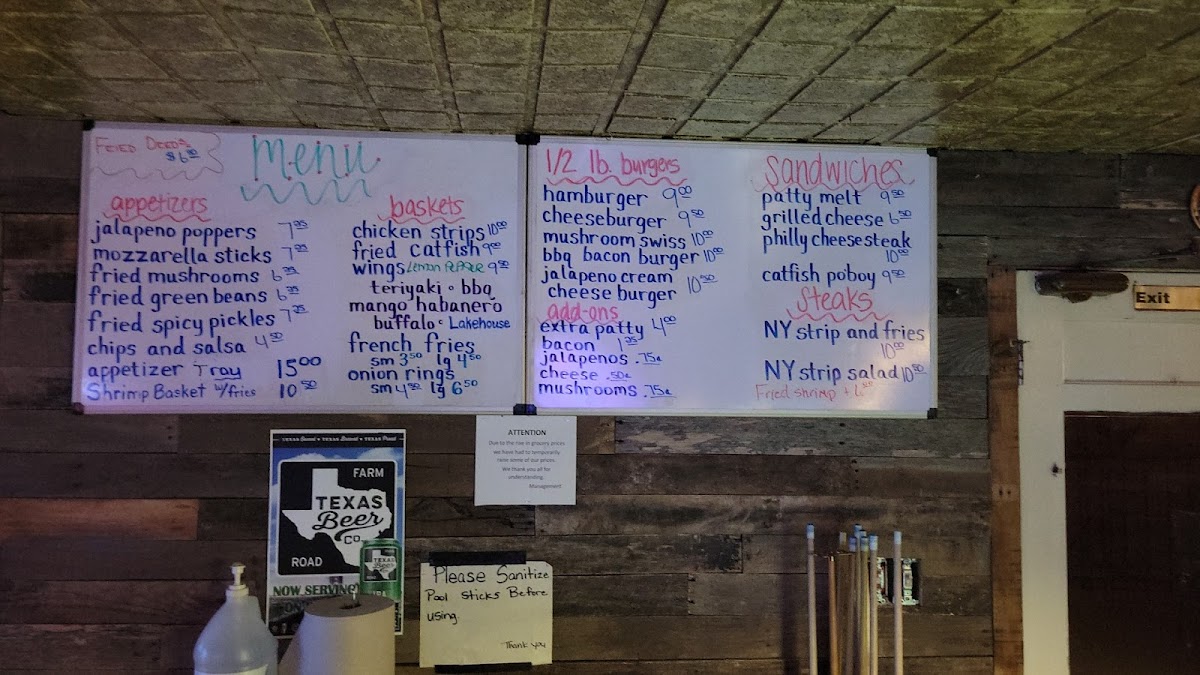 Fried Deeds
$6 50
Menu
appetizers
jalapeno poppers 7 25
mozzarella sticks 7 25
fried mushrooms 6 25
fried green beans 6 25
fried spicy pickles 7 25
chips and salsa 4 50
appetizer Tray 15 00
Shrimp Basket w/fries 10 50
baskets
chicken strips 10 00
fried catfish 9 00
wings Lemon Pepper 9 50
teriyaki • bbq
mango habanero
buffalo • Lakehouse
french fries
sm 3 50 lg 4 50
onion rings
sm 4 50 lg 6 50
1/2 lb. burgers
hamburger 9 00
cheeseburger 9 50
mushroom swiss 10 00
bbq bacon burger 10 00
jalapeno cream
cheese burger 10 50
add-ons
extra patty 4 00
bacon 1 25
jalapenos .75¢
cheese .50¢
mushrooms .75¢
Sandwiches
patty melt 9 50
grilled cheese 6 50
philly cheesesteak
10 00
catfish poboy 9 50
Steaks
NY strip and fries
10 00
NY strip salad 10 50
Fried shrimp +
Exit
ATTENTION
Due to the rise in grocery prices
we have had to temporarily
raise some of our prices.
We thank you all for
understanding.
Management
FARM
TEXAS
Beer
CO.
ROAD
TEXAS
Beer
NOW SERVING
Please Sanitize
Pool Sticks Before
using.
Thank you